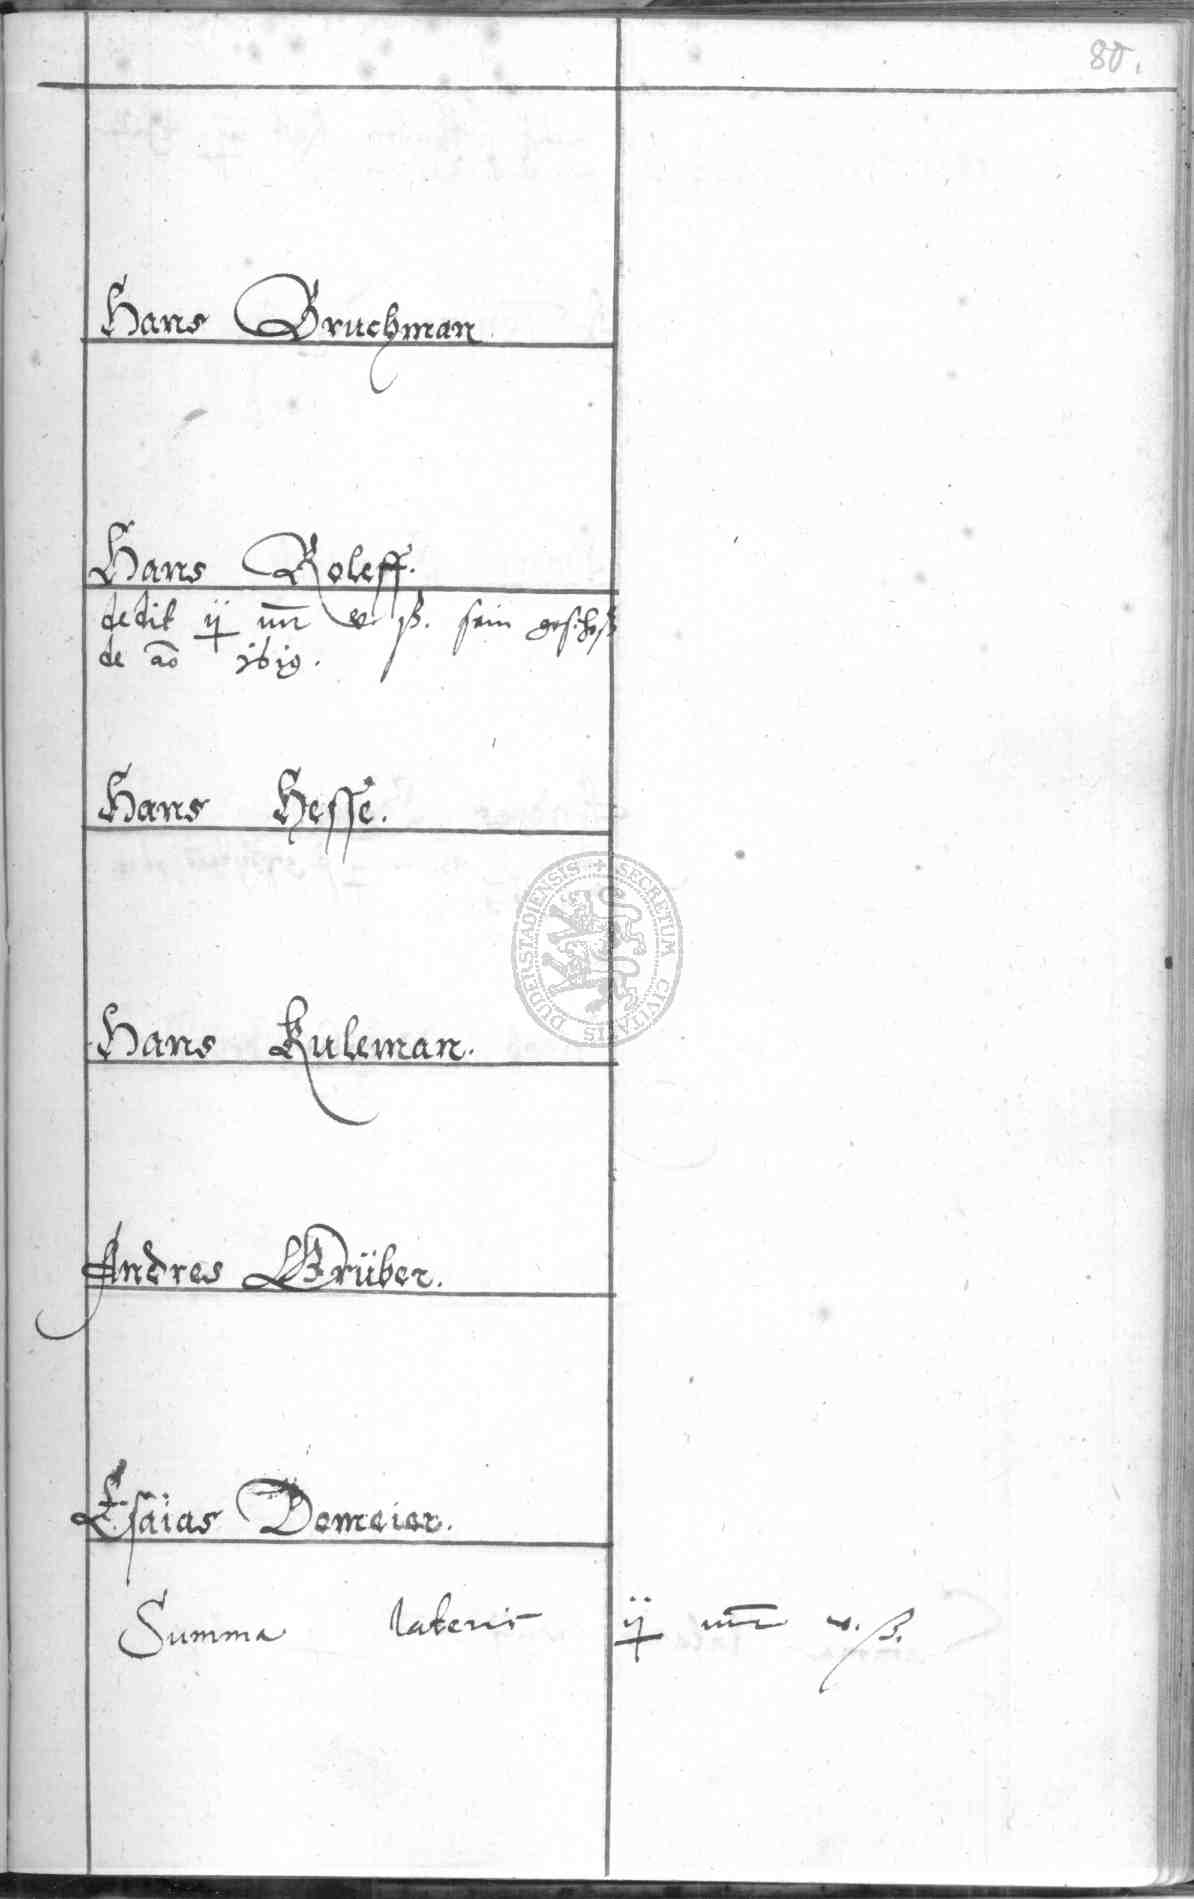 80.
Hans Bruchman
Hans Roleff.
dedit ij mr v ß. sein geschoß
de ao 1619.
Hans Hesse.
Hans Kuleman.
Andres Grüber.
Esaias Domeier.
Summa lateris ij mr v. ß.
SECRETUM CIVITATIS DUDERSTADIENSIS